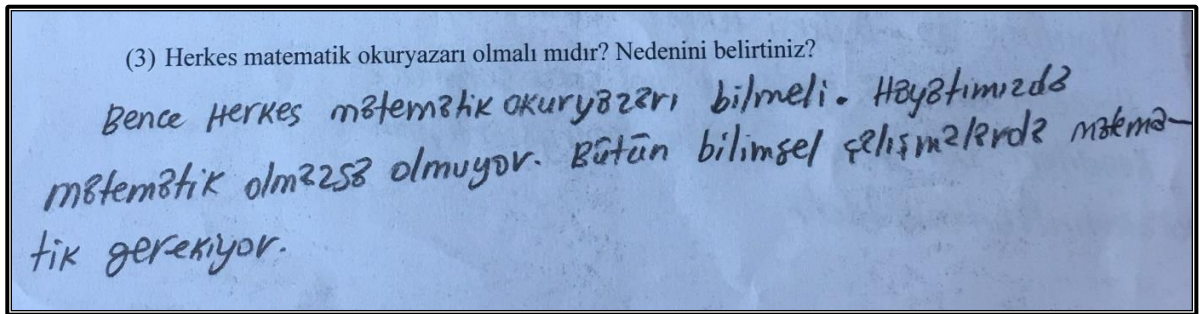 (3) Herkes matematik okuryazarı olmalı mıdır? Nedenini belirtiniz?
Bence Herkes matematik okuryazarı bilmeli. Hayatımızda
matematik olmazsa olmuyor. Bütün bilimsel çalışmalarda matema-
tik gerekiyor.